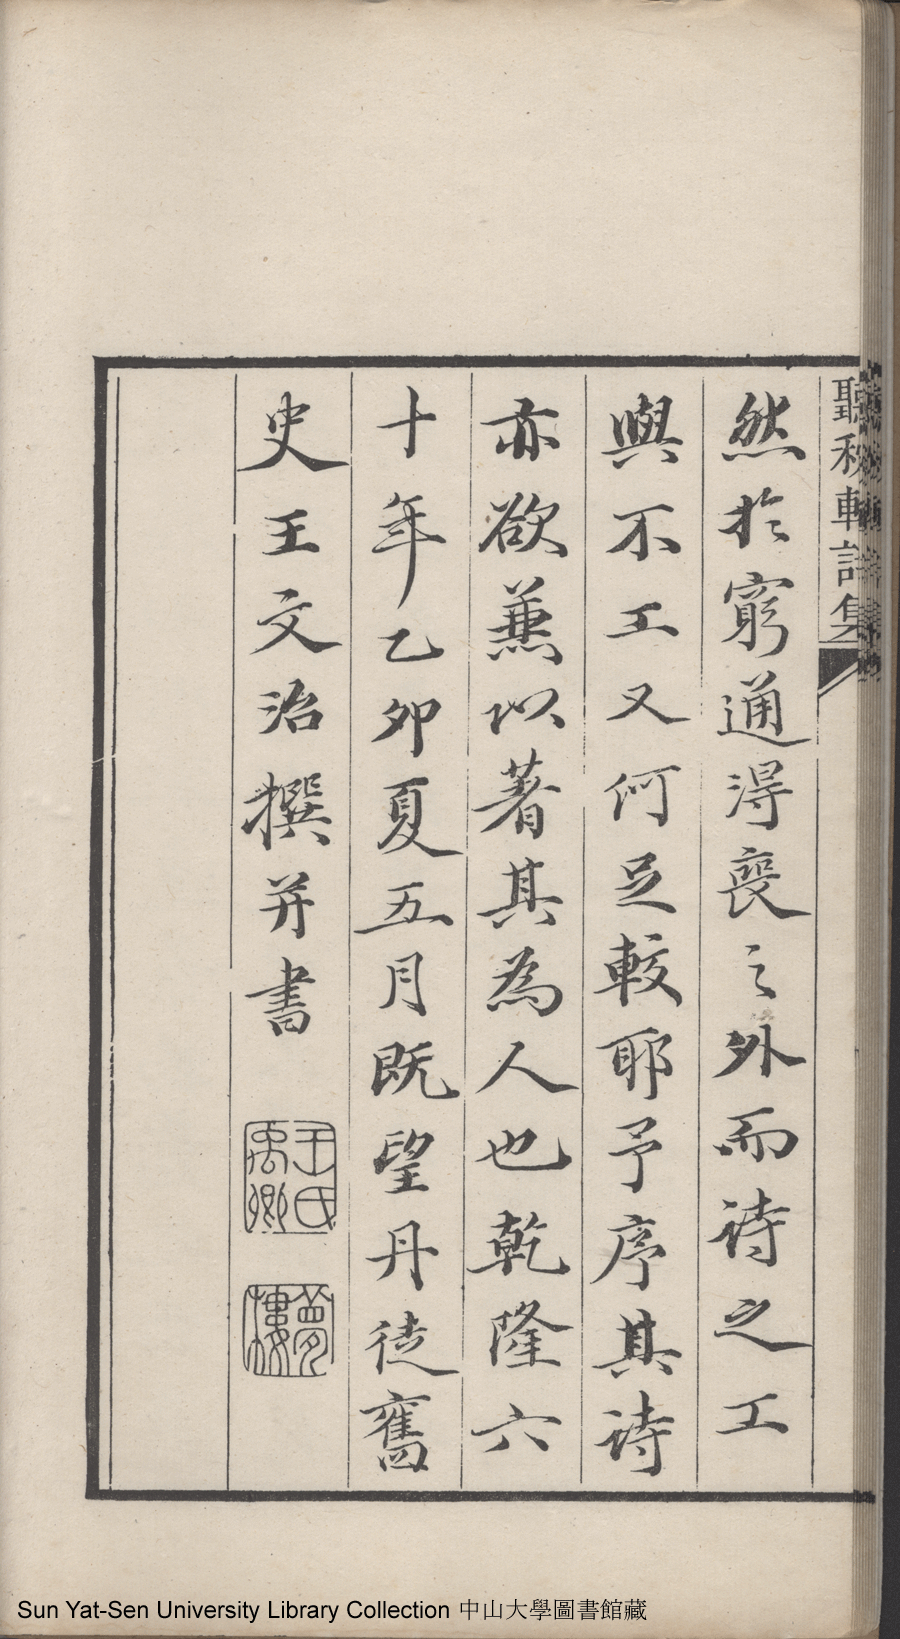 聽秋軒詩集
然於窮通淂喪之外而诗之工
與不工又何足較耶予序其诗
亦欲兼以著其為人也乾隆六
十年乙卯夏五月既望丹徒舊
史王文治撰并書
王氏禹卿
夢樓
Sun Yat-Sen University Library Collection 中山大學圖書館藏